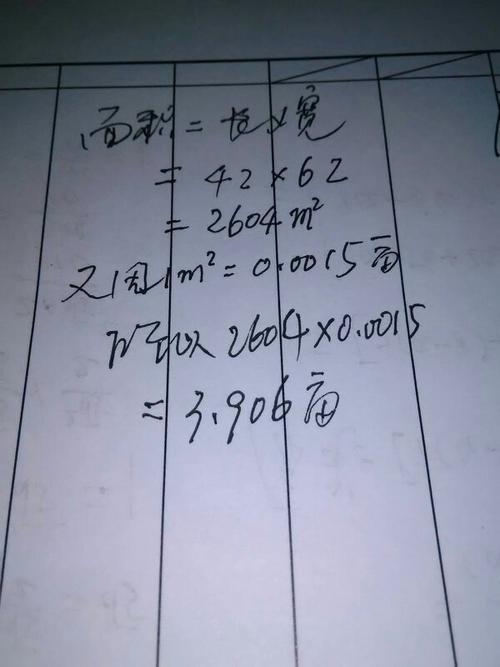 面积=长×宽
=42×62
=2604m²
又因1m²=0.0015亩
所以2604×0.0015
=3.906亩